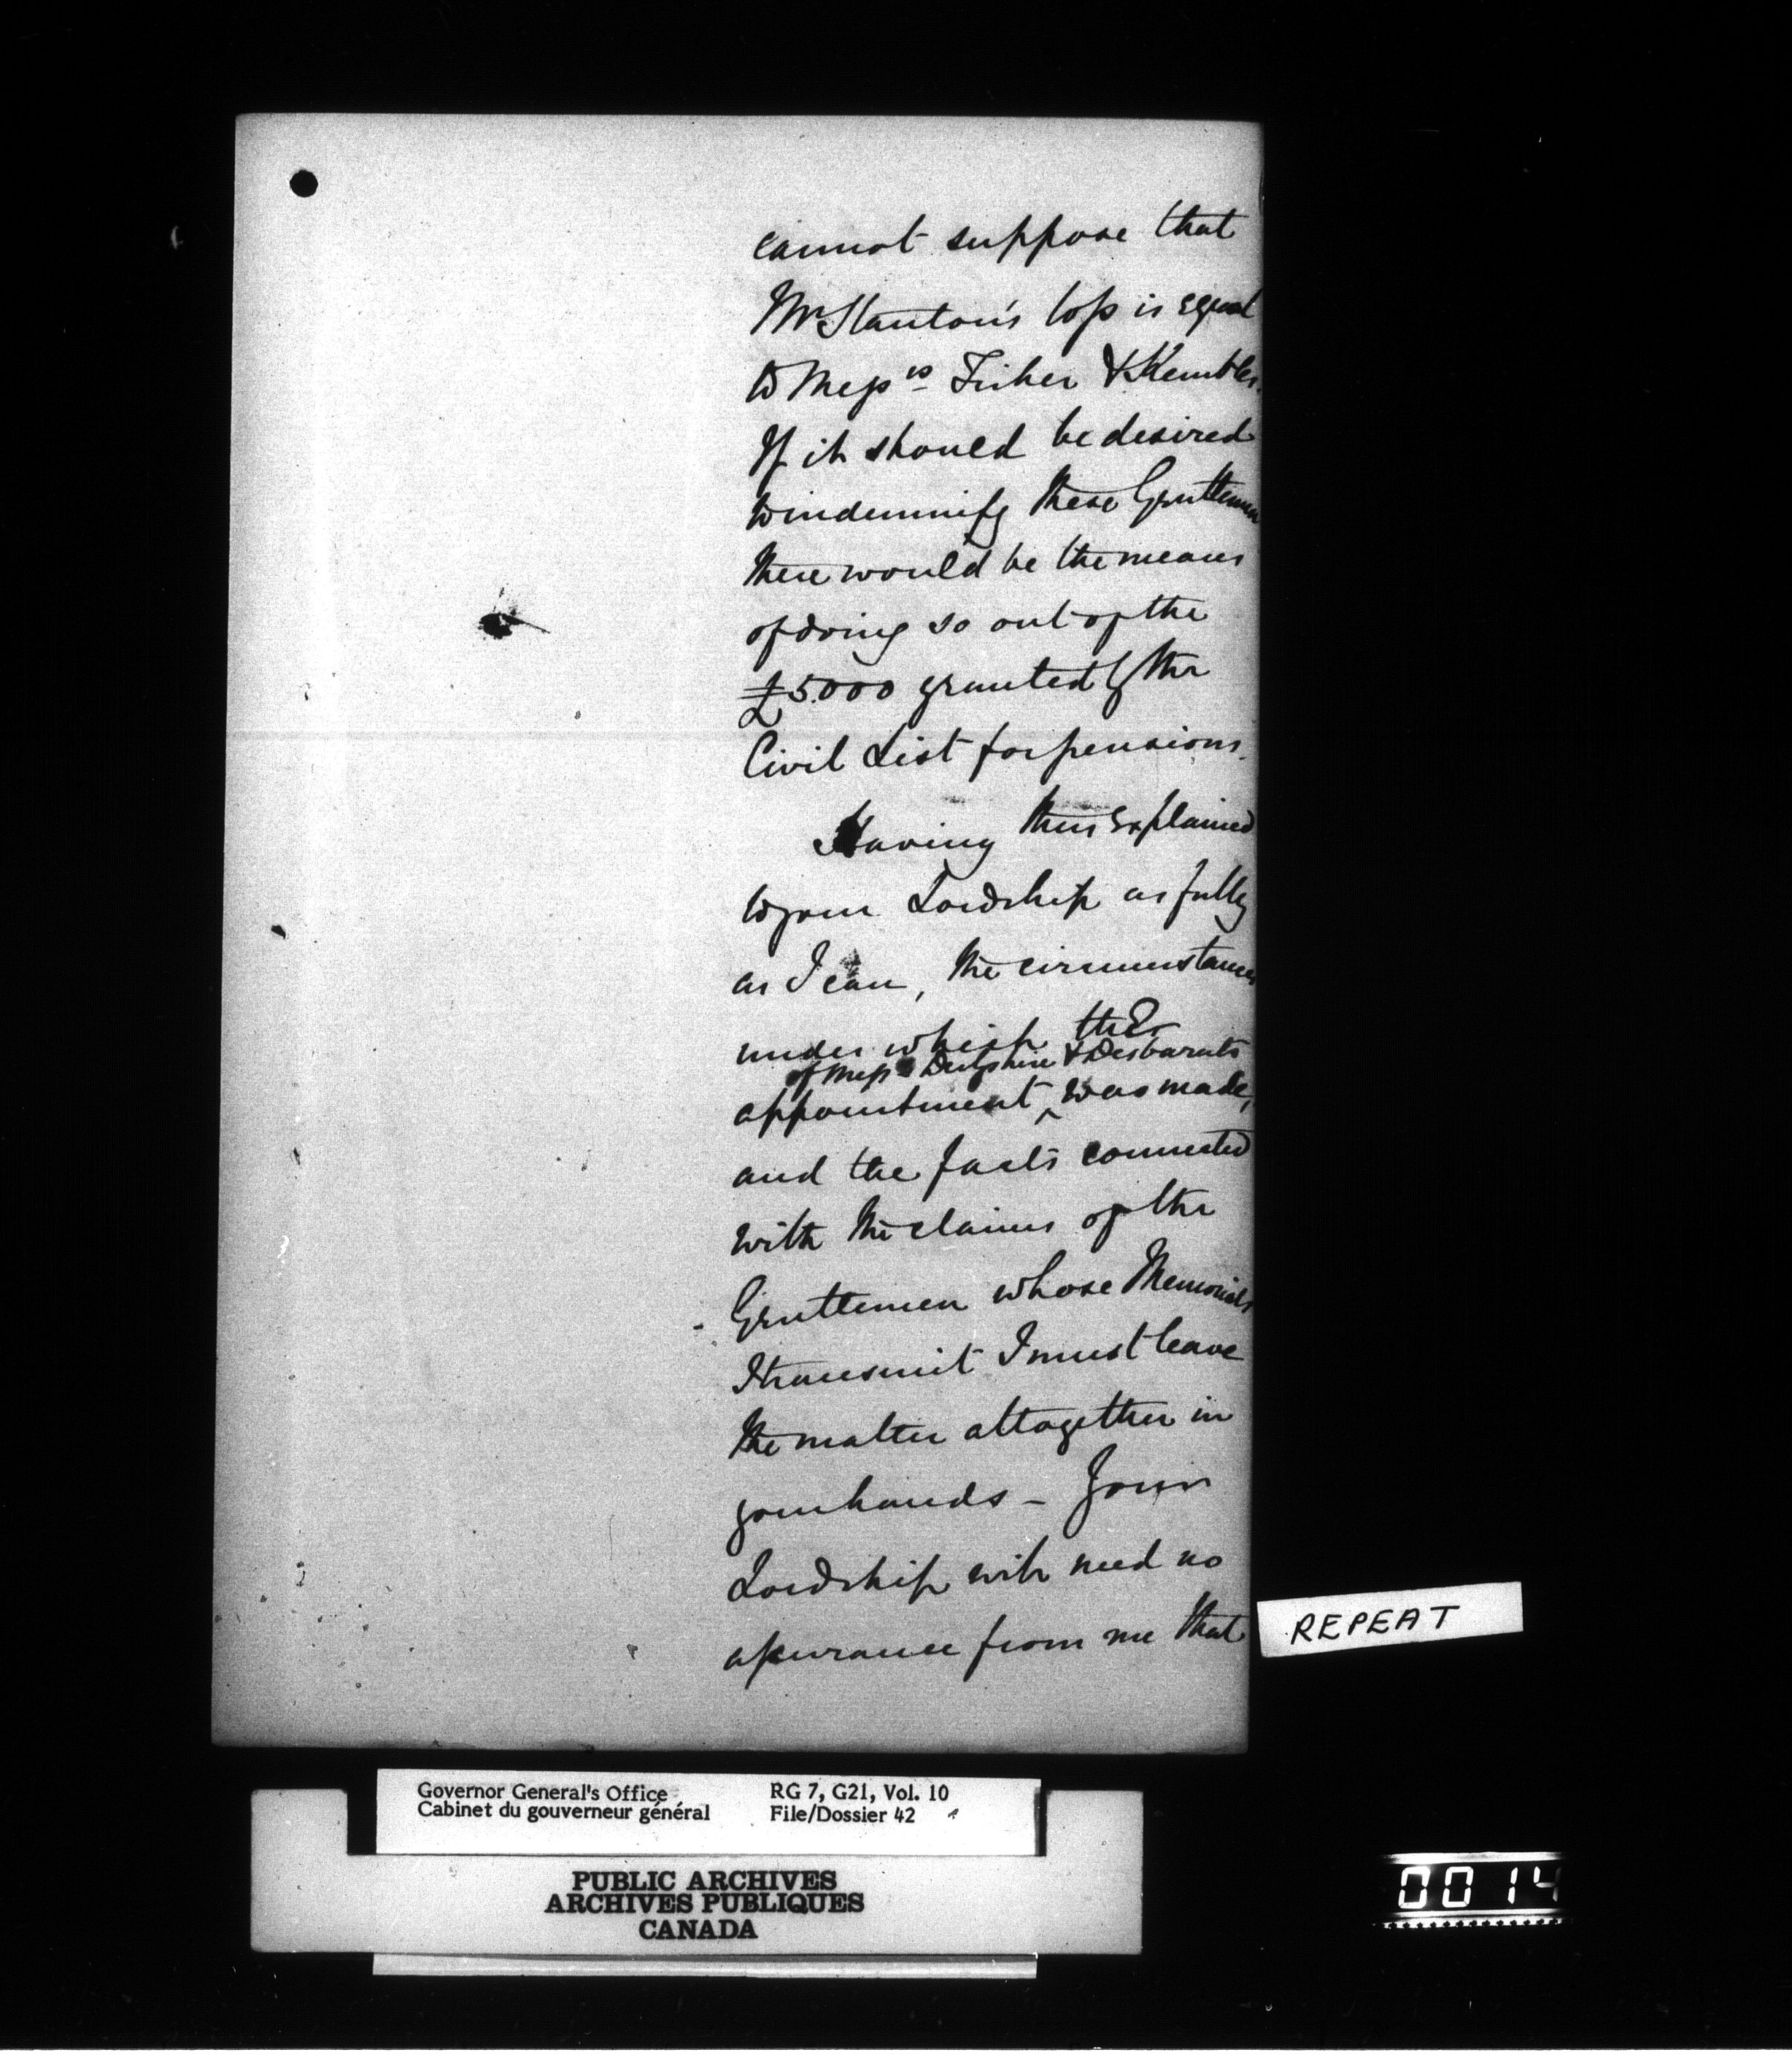 cannot suppose that
Mr Stanton's loss is equal
to Messrs Fisher & Kembles.
If it should be desired
to indemnify these Gentlemen
there would be the means
of doing so out of the
£5.000 granted by the
Civil List for pensions.
Having thus explained
to your Lordship as fully
as I can, the circumstances
under which the
of Messrs Derbshire & Desbarats
appointment ^ was made,
and the facts connected
with the claims of the
Gentlemen whose Memorials
I transmit I must leave
the matter altogether in
your hands - Your
Lordship will need no
assurance from me that
REPEAT
Governor General's Office RG 7, G21, Vol. 10
Cabinet du gouverneur général File/Dossier 42
PUBLIC ARCHIVES
ARCHIVES PUBLIQUES
CANADA
0014